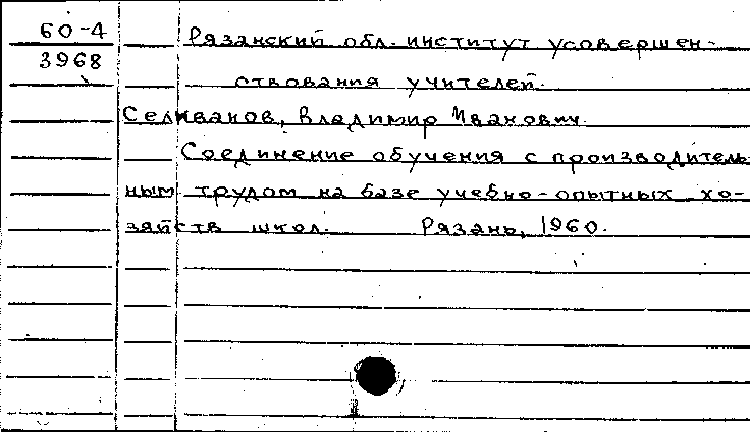 60-4
3968
Рязанский обл. институт усовершен-
ствования учителей.
Селиванов, Владимир Иванович.
Соединение обучения с производитель
ным трудом на базе учебно-опытных хо-
зяйств школ. Рязань, 1960.